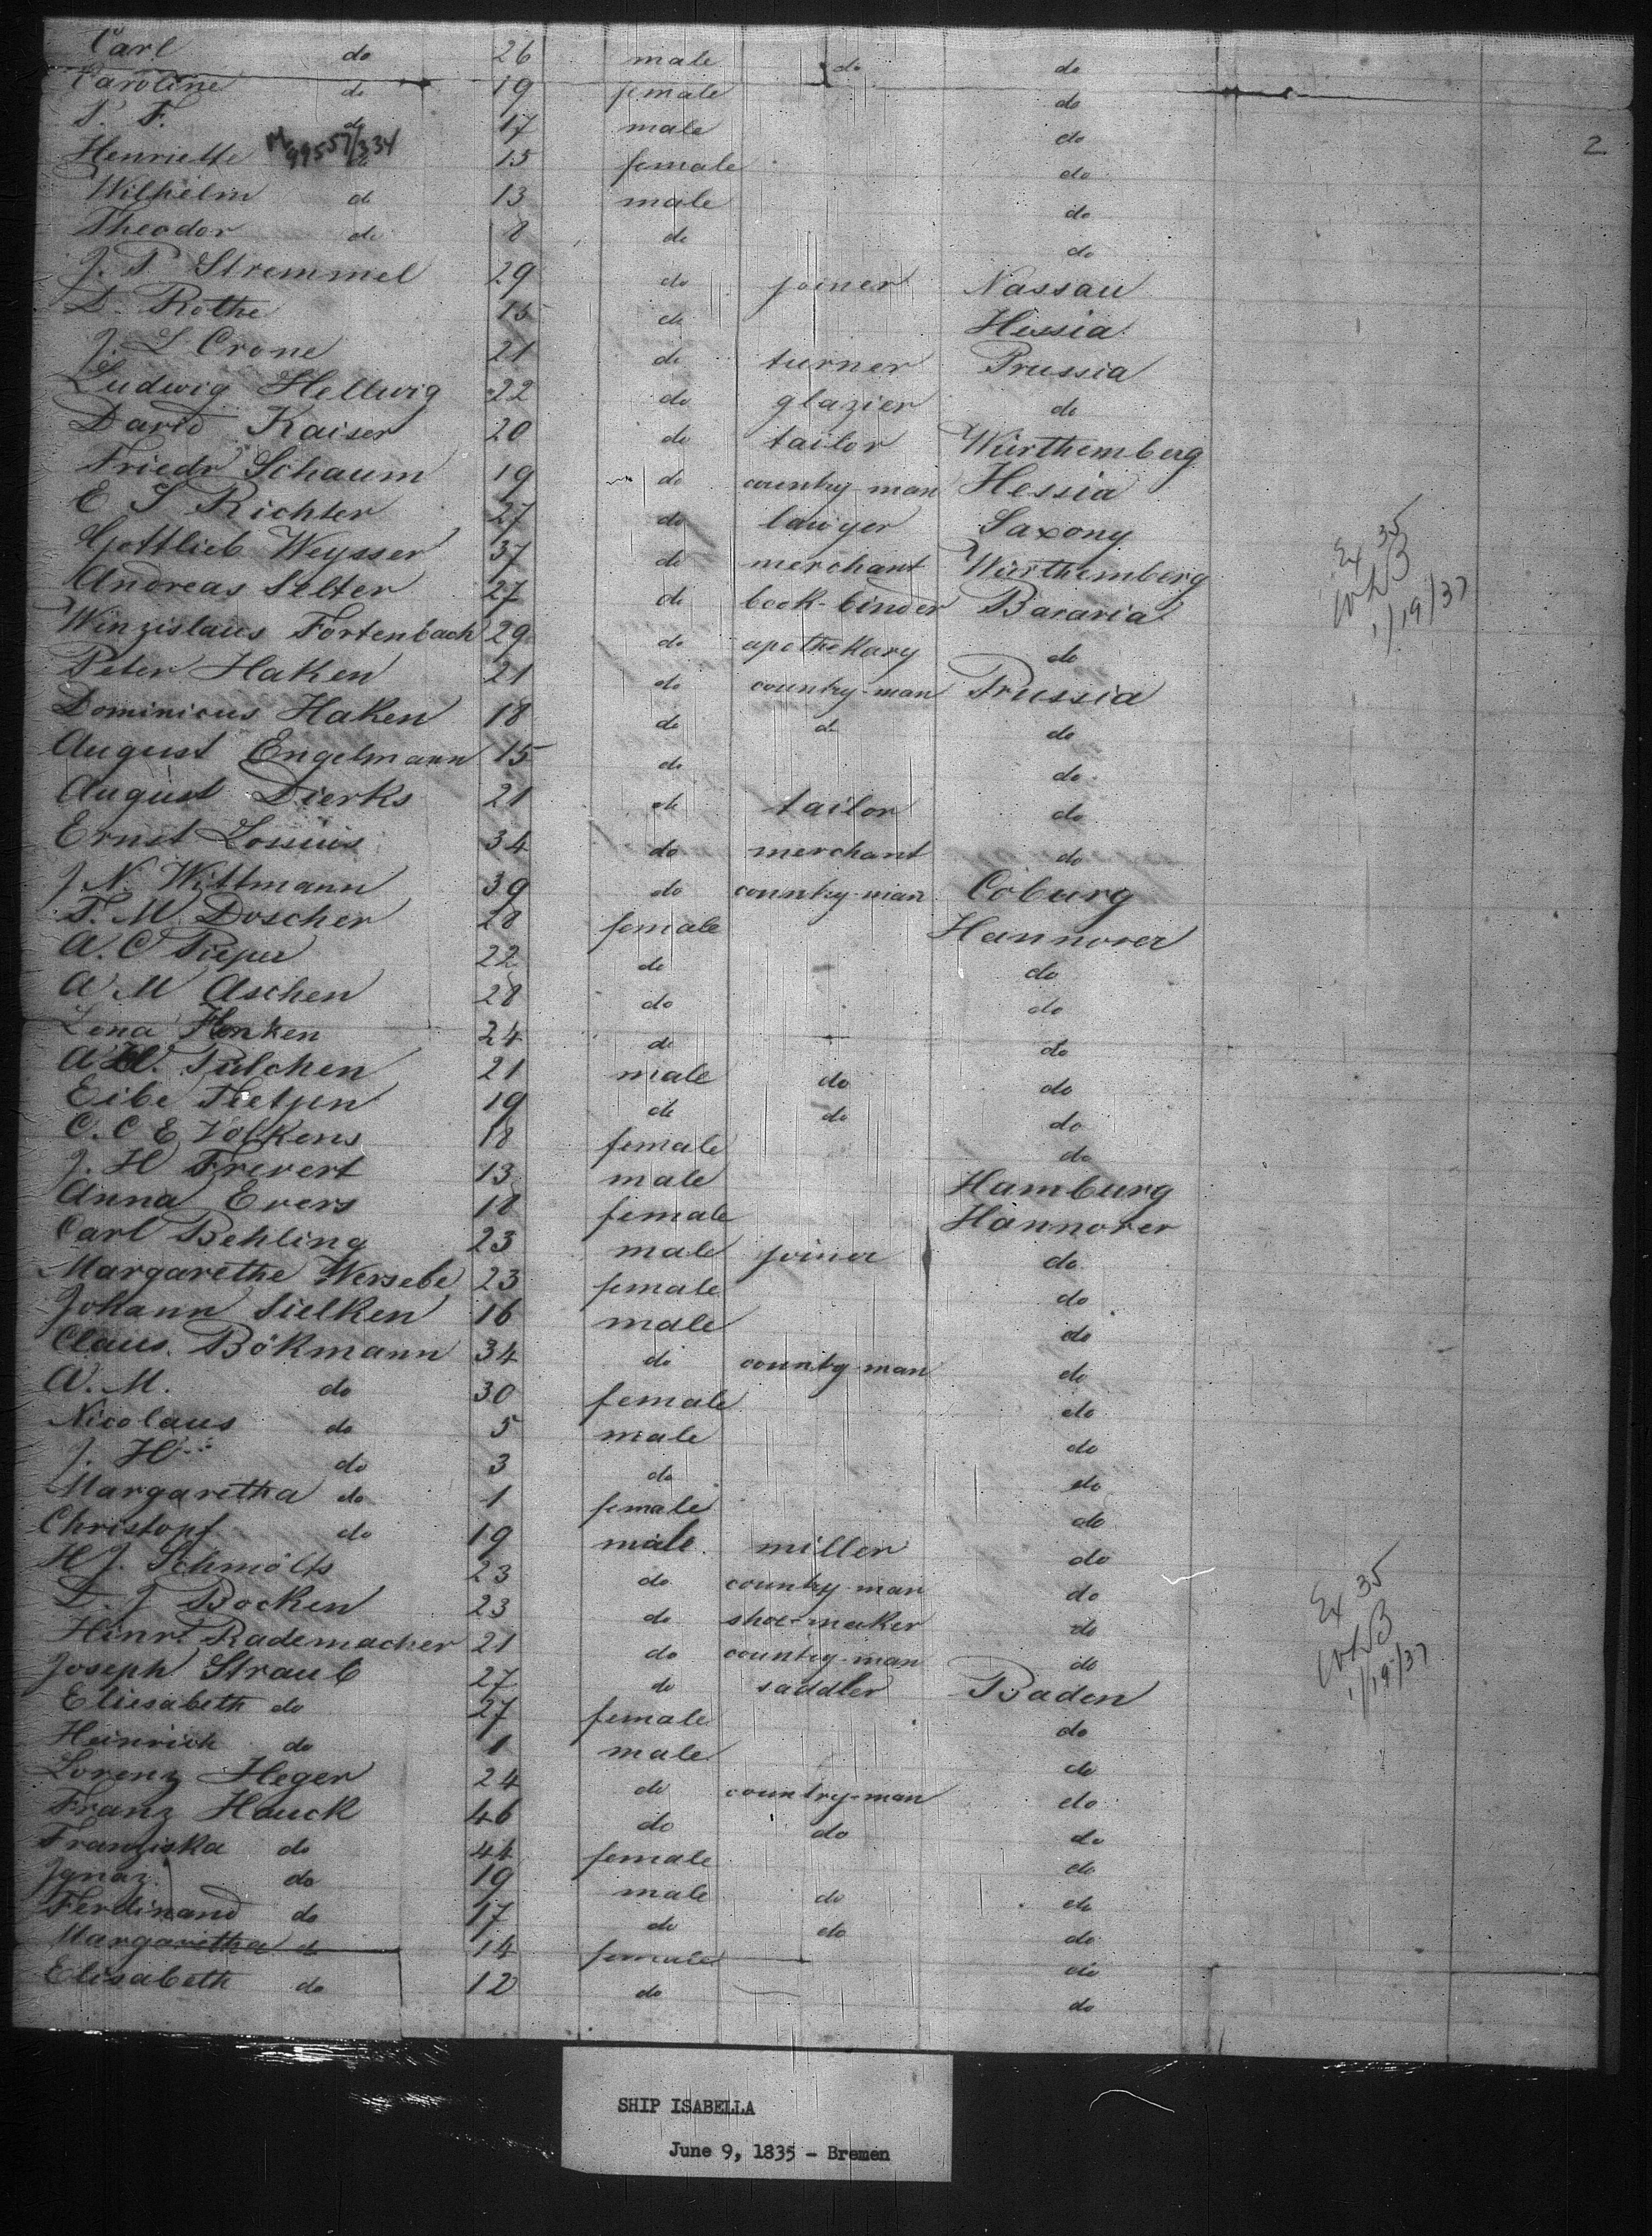 Carl do 26 male do do
Caroline do 19 female do
P. F. do 17 male do
Henriette do 15 female do
Wilhelm do 13 male do
Theodor do 8 do do
J. P Stremmel 29 do joiner Nassau
D. Rothe 15 do Hessia
J. L Crone 21 do turner Prussia
Ludwig Hellwig 22 do glazier do
David Kaiser 20 do tailor Würthemberg
Friedr Schaum 19 do country-man Hessia
E S Richter 27 do lawyer Saxony
Gottlieb Weysser 37 do merchant Würthemberg
Andreas Selter 27 do book-binder Bavaria
Winzislaus Fortenbach 29 do apothekary do
Peter Haken 21 do country-man Prussia
Dominicus Haken 18 do do do
August Engelmann 15 do do
August Dierks 21 do tailor do
Ernst Lossius 34 do merchant do
J. N. Wittmann 39 do country-man Coburg
T. M. Doscher 28 female Hannover
A. C Pieper 22 do do
A M Aschen 28 do do
Lena Henken 24 do do
A. Pülchen 21 male do do
Eibe Tietjen 19 do do do
C. C E Volkens 18 female do
J. H Frevert 13 male Hamburg
Anna Evers 18 female Hannover
Carl Behling 23 male joiner do
Margarethe Wersebe 23 female do
Johann Sielken 16 male do
Claus Bökmann 34 do country-man do
A. M. do 30 female do
Nicolaus do 5 male do
J. H do 3 do do
Margaretha do 1 female do
Christopf do 19 male miller do
H J. Schmolts 23 do country-man do
D. J Bocken 23 do shoe-maker do
Hinr. Rademacher 21 do country-man do
Joseph Straub 27 do saddler Baden
Eliesabeth do 27 female do
Heinrich do 1 male do
Lorenz Heger 24 do country-man do
Franz Hauck 46 do do do
Franziska do 44 female do
Ignaz do 19 male do do
Ferdinand do 17 do do do
Margaretha do 14 female do
Elisabeth do 12 do do
2
99557/334
Ex 35
WHB
1/19/37
Ex 35
WHB
1/19/37
SHIP ISABELLA
June 9, 1835 - Bremen